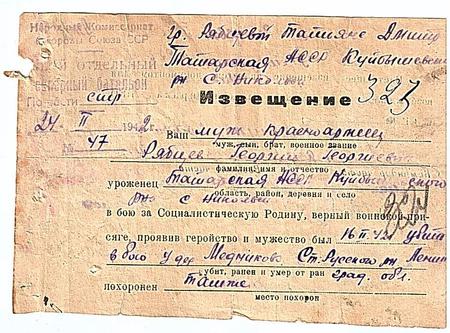 Народный Комиссариат
Обороны Союза ССР
отдельный
батальон
По части стр
24 II 1942
№ 47
гр. Рябцевой Татьяне Дмитр
Татарская АССР Куйбышевский
рн с. Никольск
Извещение 323
Ваш муж красноармеец
муж, сын, брат, военное звание
Рябцев Георгий Георгиевич
фамилия, имя и отчество
уроженец Татарская АССР Куйбышевского
область, район, деревня и село
рна с Никольск
в бою за Социалистическую Родину, верный воинской при-
сяге, проявив геройство и мужество был 16 II 42 убит
в бою у дер Медниково Ст. Русского рн Ленин
убит, ранен и умер от ран град. обл.
похоронен также
место похорон